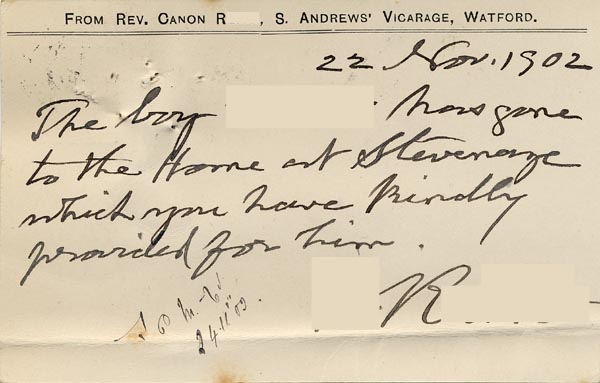 From Rev. Canon R , S. Andrews' Vicarage, Watford.
22 Nov. 1902
The boy has gone
to the Home at Stevenage
which you have kindly
provided for him.
R
24.11.02.